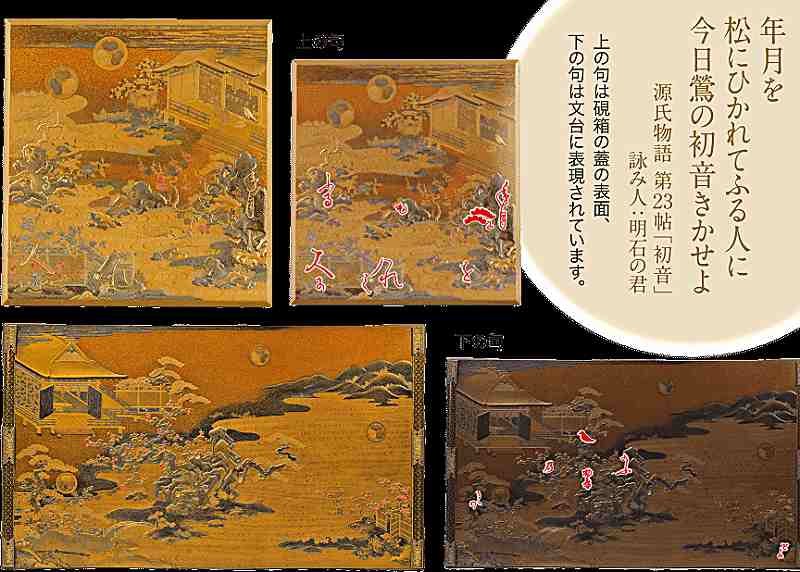 年月を
松にひかれてふる人に
今日鶯の初音きかせよ
源氏物語 第23帖「初音」
詠み人：明石の君
上の句は硯箱の蓋の表面、
下の句は文台に表現されています。
上の句
下の句